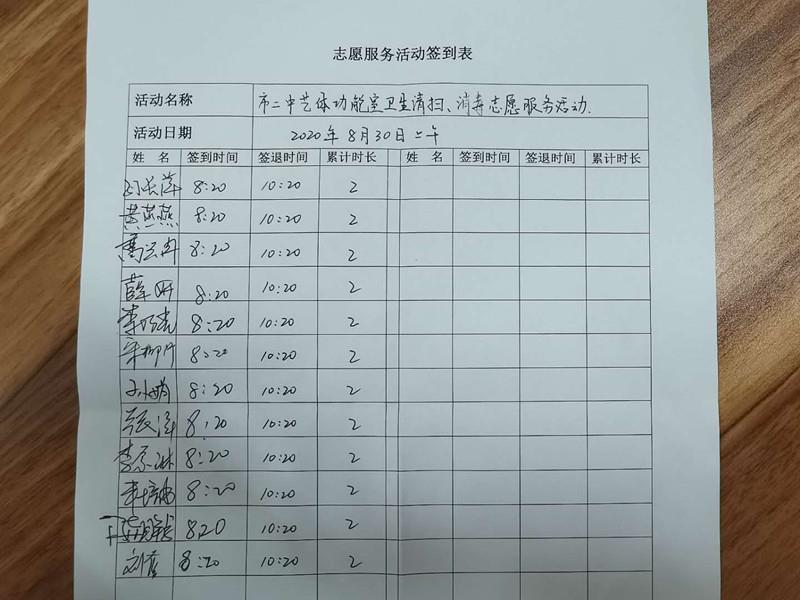 志愿服务活动签到表
活动名称 市二中艺体功能室卫生清扫、消毒志愿服务活动.
活动日期 2020年8月30日上午
姓 名 签到时间 签退时间 累计时长 姓 名 签到时间 签退时间 累计时长
8:20 10:20 2
黄燕燕 8:20 10:20 2
8:20 10:20 2
薛妍 8:20 10:20 2
8:20 10:20 2
8:20 10:20 2
8:20 10:20 2
张洋 8:20 10:20 2
8:20 10:20 2
8:20 10:20 2
8:20 10:20 2
8:20 10:20 2